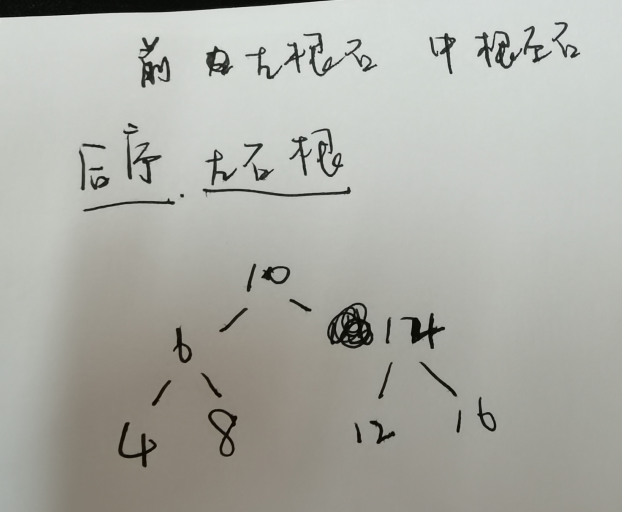 前 左根右 中 根左右
后序. 左右根
10
6 14
4 8 12 16